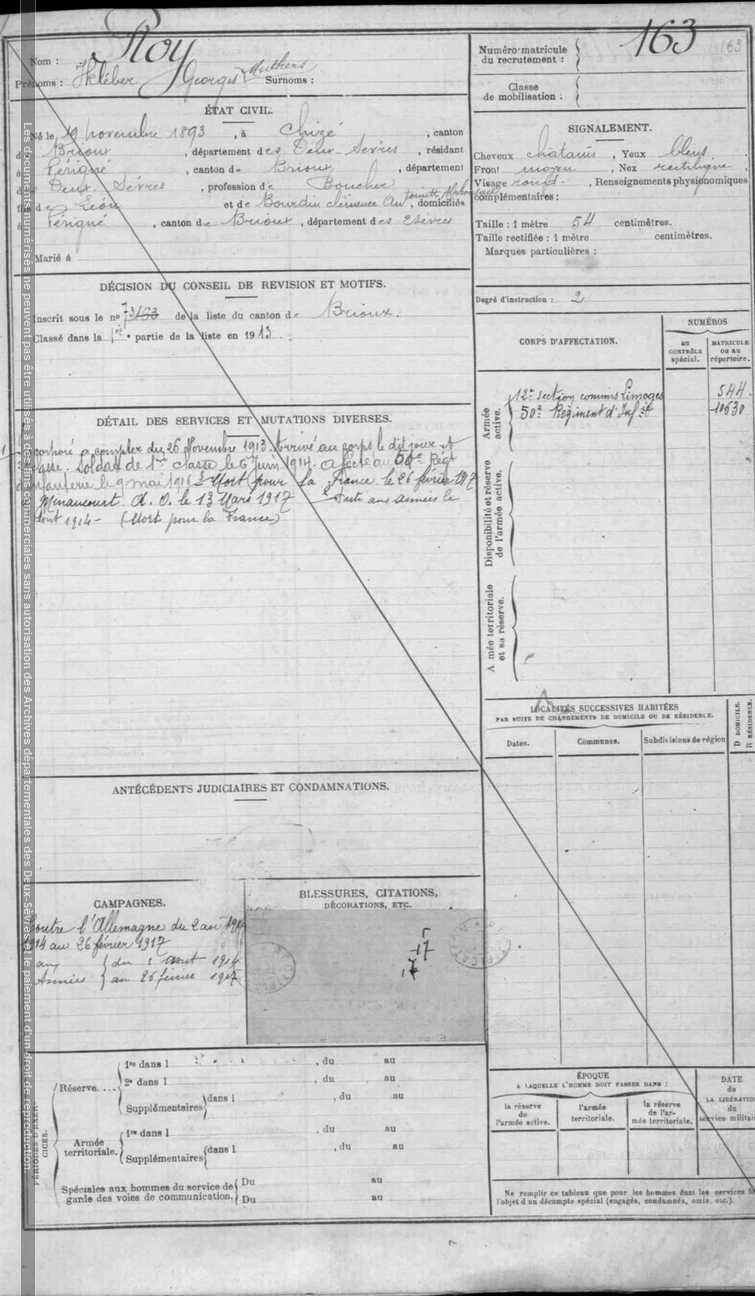 Roy
163
163
Nom :
Prénoms : Kléber Georges Mathurin Surnoms :
Numéro-matricule du recrutement :
Classe de mobilisation :
ÉTAT CIVIL.
Né le 19 novembre 1893, à Chizé, canton
Brioux, département des Deux-Sèvres, résidant
à Périgné, canton de Brioux, département
Deux-Sèvres, profession de Boucher
fils de Léon et de Bourdin Clémence, domiciliés
Périgné, canton de Brioux, département des 2 Sèvres
Marié à
SIGNALEMENT.
Cheveux chatains, Yeux bleus
Front moyen, Nez rectiligne,
Visage rond., Renseignements physionomiques
complémentaires :
Taille : 1 mètre 54 centimètres.
Taille rectifiée : 1 mètre centimètres.
Marques particulières :
Degré d'instruction : 2
DÉCISION DU CONSEIL DE REVISION ET MOTIFS.
Inscrit sous le nº de la liste du canton de Brioux.
Classé dans la 1re partie de la liste en 1913.
CORPS D'AFFECTATION.
NUMÉROS
AU CONTRÔLE spécial.
MATRICULE OU AU répertoire.
Armée active.
12e section commis Limoges 544
50e Régiment d'Infie 10630
Disponibilité et réserve de l'armée active.
Armée territoriale et sa réserve.
DÉTAIL DES SERVICES ET MUTATIONS DIVERSES.
à compter du 26 Novembre 1913. Arrivé au corps le dit jour et
Soldat de 1re classe le 6 Juin 1914. Affecté au 50e Régt
le 9 mai 1916. Mort pour la France le 26 février 1917
Minaucourt A. O. le 13 Mars 1917
1914 - (Mort pour la France)
LOCALITÉS SUCCESSIVES HABITÉES
PAR SUITE DE CHANGEMENTS DE DOMICILE OU DE RÉSIDENCE.
Dates.
Communes.
Subdivisions de région
D DOMICILE.
R RÉSIDENCE.
ANTÉCÉDENTS JUDICIAIRES ET CONDAMNATIONS.
CAMPAGNES.
Contre l'Allemagne du 2 août
14 au 26 février 1917
du 2 août 1914
Armées au 26 février 1917
BLESSURES, CITATIONS,
DÉCORATIONS, ETC.
17
17
PÉRIODES D'EXERCICES.
Réserve....
1re dans l , du au
2e dans l , du au
Supplémentaires dans l , du au
Armée territoriale.
1re dans l , du au
Supplémentaires dans l , du au
Spéciales aux hommes du service de
garde des voies de communication.
Du au
Du au
ÉPOQUE
A LAQUELLE L'HOMME DOIT PASSER DANS :
la réserve de l'armée active.
l'armée territoriale.
la réserve de l'armée territoriale.
DATE de LA LIBÉRATION du service militaire
Ne remplir ce tableau que pour les hommes dont les services
l'objet d'un décompte spécial (engagés, condamnés, omis, etc.).
Les documents numérisés ne peuvent pas être utilisés à des fins commerciales sans autorisation des Archives départementales des Deux-Sèvres et le paiement d'un droit de reproduction.